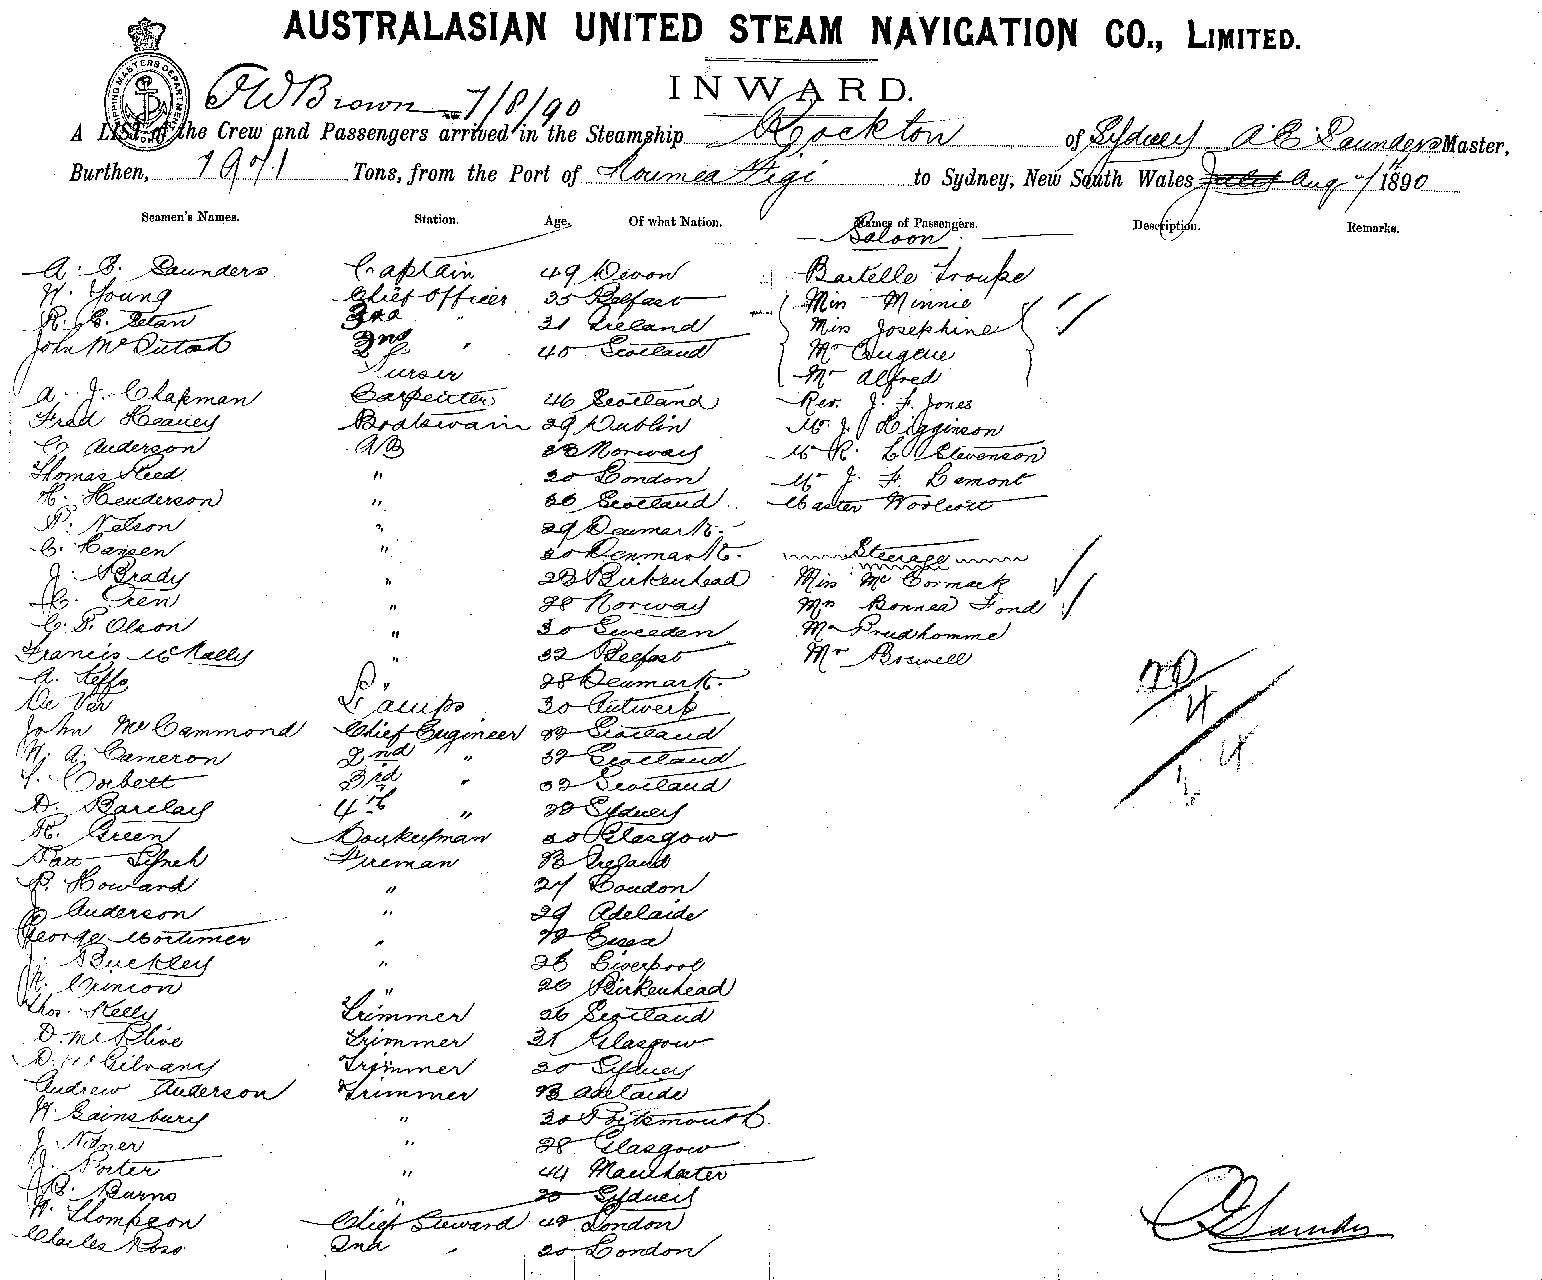 AUSTRALASIAN UNITED STEAM NAVIGATION CO., LIMITED.
INWARD.
SHIPPING MASTERS DEPARTMENT
FWBrown 7/8/90
A LIST of the Crew and Passengers arrived in the Steamship Rockton of Sydney A C Saunders Master,
Burthen, 1971 Tons, from the Port of Noumea Figi to Sydney, New South Wales Aug 7th 1890
Seamen's Names. Station. Age. Of what Nation. Names of Passengers. Description. Remarks.
Saloon
A. C. Saunders Captain 49 Devon Bartelle Troupe
W. Young Chief Officer 35 Belfast Miss Minnie
3rd " 31 Ireland Miss Josephine
John McIntosh 2nd " 40 Scotland Mr Eugene
Purser Mr Alfred
A. J. Chapman Carpenter 46 Scotland Rev. J. F. Jones
Fred Heaney Boatswain 29 Dublin Mr J. Higginson
C. Anderson AB Norway Mr R. L. Stevenson
Thomas Reed " 20 London Mr J. F. Lamont
H. Henderson " 36 Scotland Master Woolcott
P. Nelson " 29 Denmark
C. Hansen " 30 Denmark Steerage
J. Brady " 23 Birkenhead Miss McCormack
" 28 Norway Mrs Bonnea Fond
C. P. Olson " 30 Sweeden Mr Prudhomme
Francis McNally " 32 Belfast Mr Boswell
" 28 Denmark
De Var Lamps 30 Antwerp
John McCammond Chief Engineer Scotland
W. A. Cameron 2nd " 32 Scotland
Corbett 3rd " 32 Scotland
D. Barclay 4th " Sydney
R. Green Donkeyman 30 Glasgow
Patt Lynch Fireman Ireland
P. Howard " 27 London
J. Anderson " 29 Adelaide
George Mortimer " Essex
J. Buckley " 26 Liverpool
" 26 Birkenhead
Thos. Kelly Trimmer 26 Scotland
D. Trimmer 31 Glasgow
D. McGilvany Trimmer 20 Sydney
Andrew Anderson Trimmer Adelaide
W. Gainsbury " 20 Portsmouth
J. " 28 Glasgow
J. Porter " 44 Manchester
B. Burns " 20 Sydney
W. Thompson Chief Steward London
Charles Ross 2nd " 20 London
Saunders